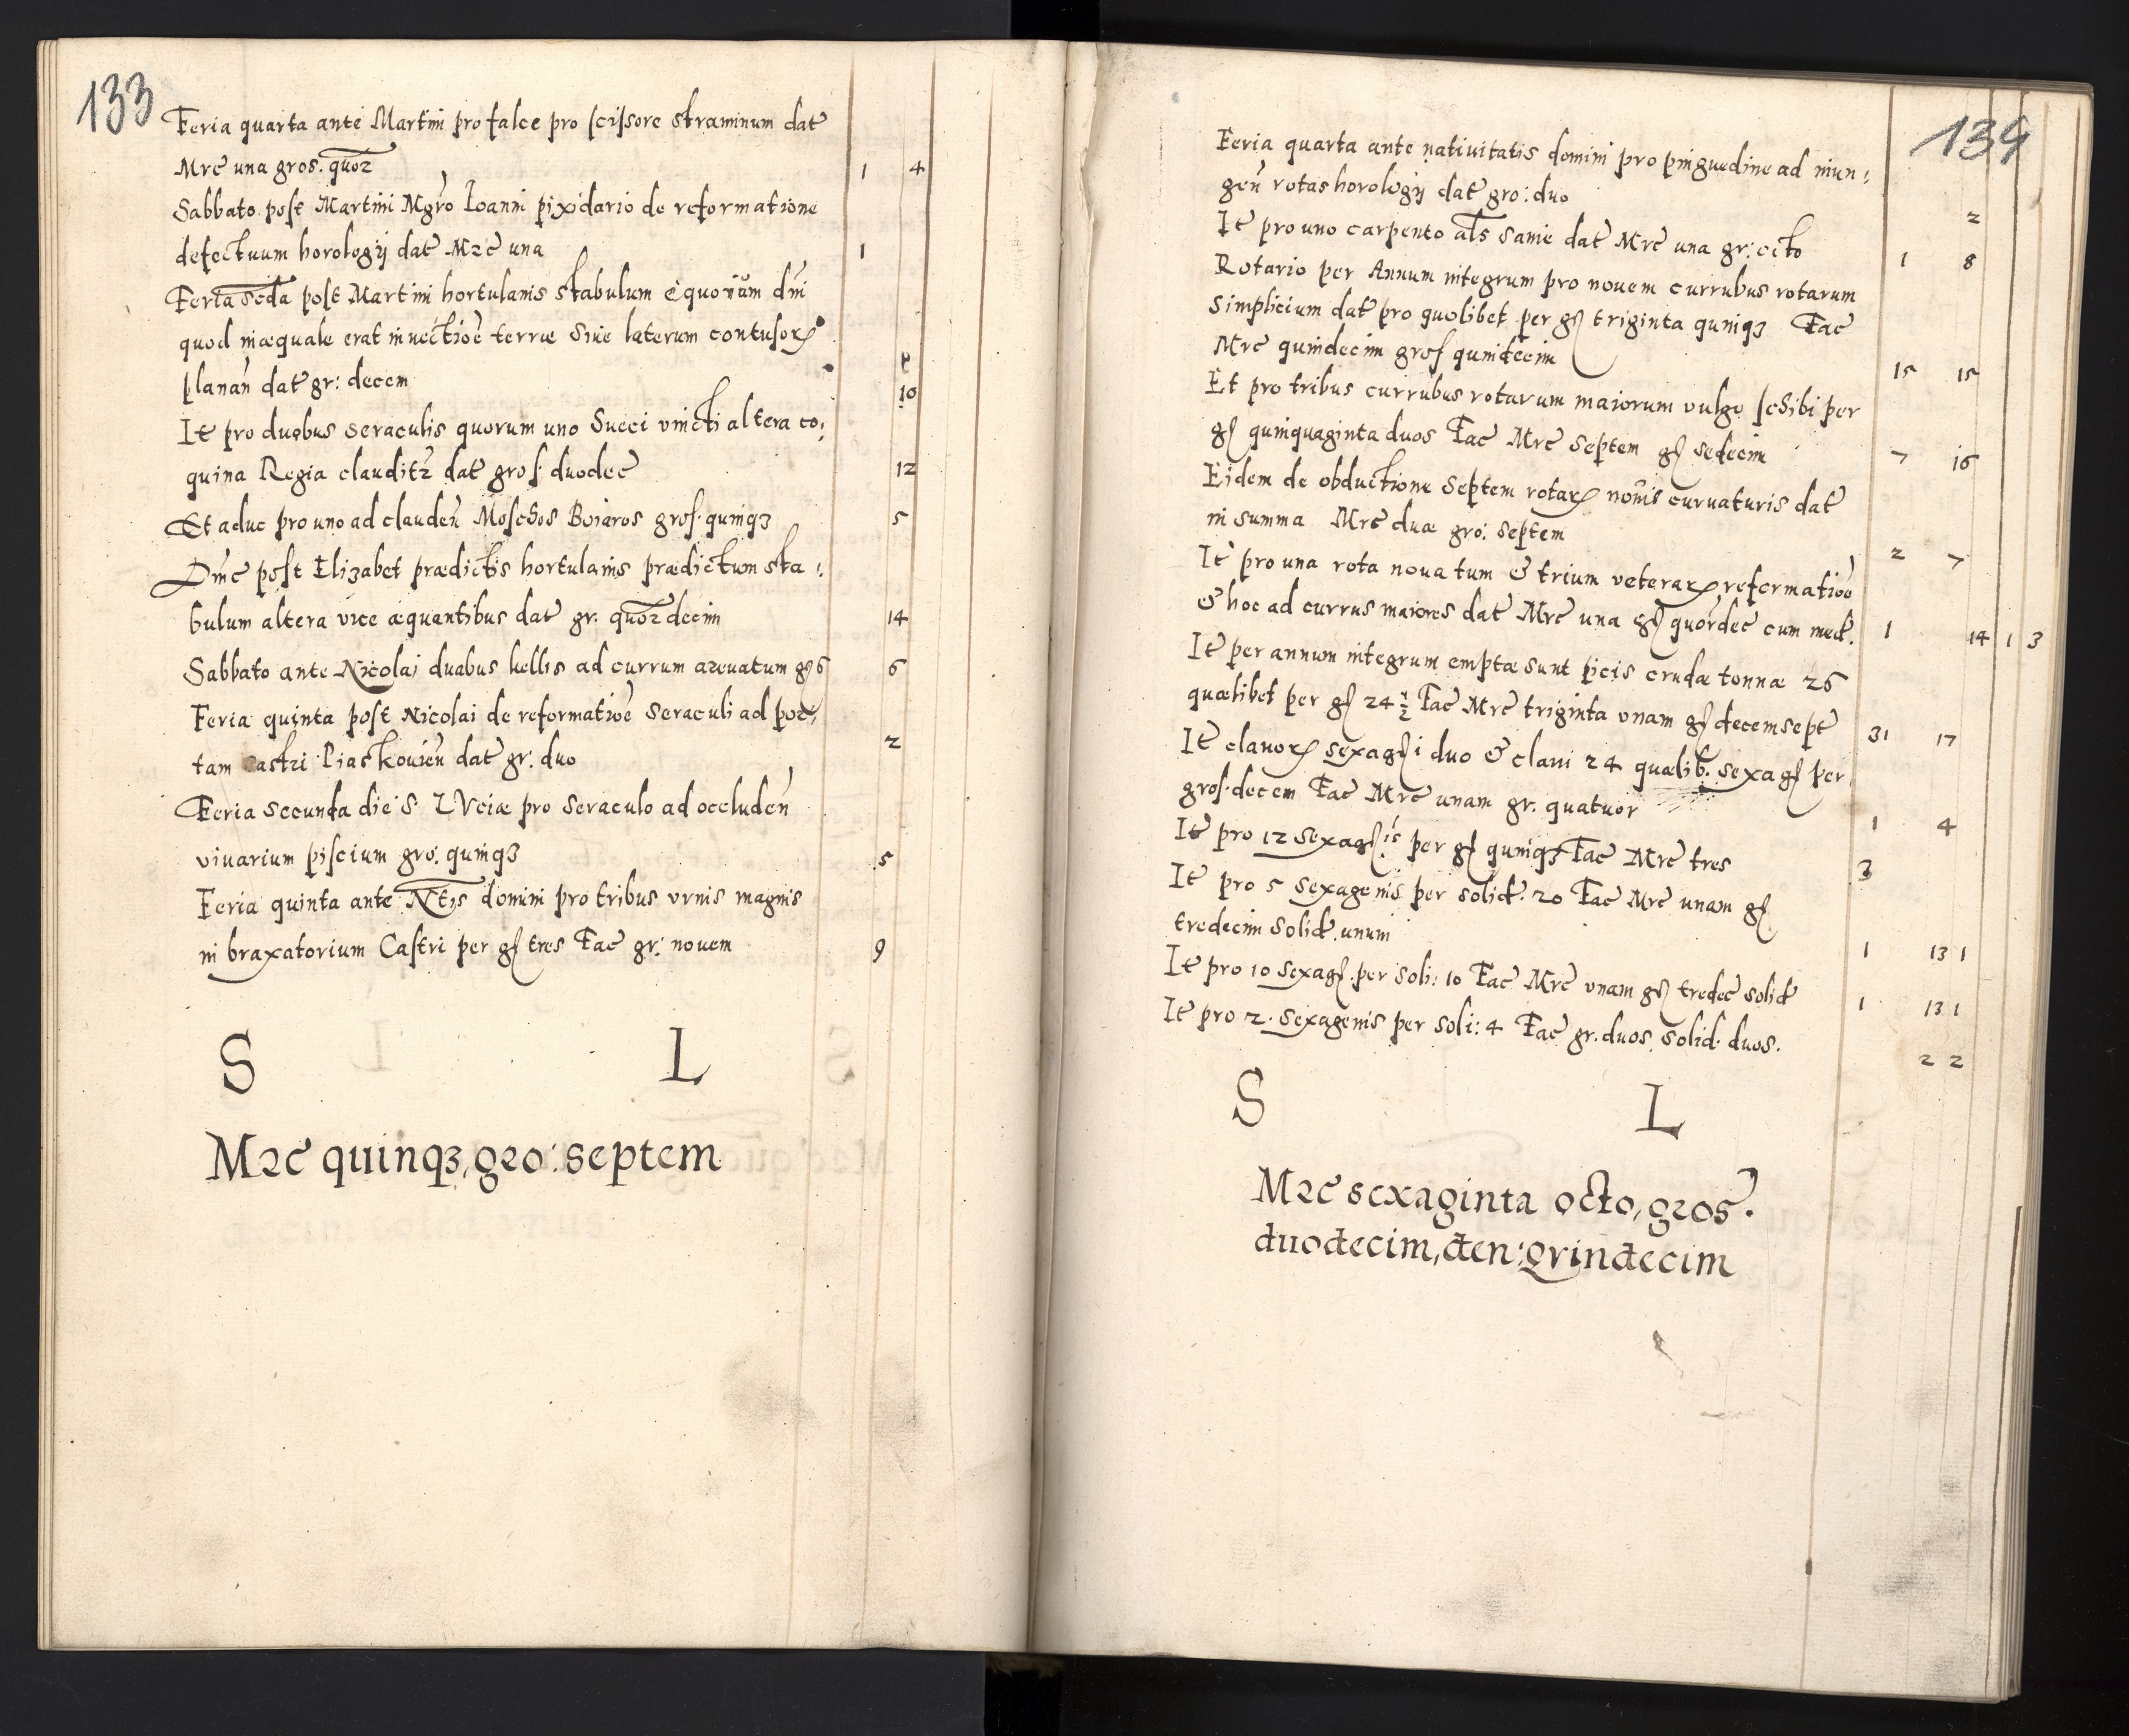 133
Feria quarta ante Martini pro falce pro scissore straminum dat
Mrc una gros. quor 1 4
Sabbato post Martini Mgro Ioanni pixidario de reformatione
defectuum horologij dat Mrc una 1
Feria scda post Martini hortulanis stabulum equorum dni
quod inæquale erat inuectioe terræ siue laterum contusor
planan dat gr: decem 10
It pro duobus seraculis quorum uno Sueci vincti altera co:
quina Regia claudit dat gros. duodec 12
Et aduc pro uno ad clauden Moschos Boiaros gros. quinqȝ 5
Dnic post Elizabet prædictis hortulanis prædictum sta:
bulum altera vice æquantibus dat gr. quordecim 14
Sabbato ante Nicolai duabus hellis ad currum arcuatum gs 6 6
Feria quinta post Nicolai de reformatioe seraculi ad por:
tam Castri Piaskouien dat gr. duo 2
Feria secunda die S. LVciæ pro seraculo ad occluden
viuarium piscium gro: quinqȝ 5
Feria quinta ante Ntis domini pro tribus vrnis magnis
in braxatorium Castri per gs tres Fac gr: nouem 9
S L
Mrc quinqȝ, gro: septem
134
Feria quarta ante natiuitatis domini pro pinguedine ad inun:
gen rotas horologij dat gro: duo 2
It pro uno carpento als sanie dat Mrc una gr: octo 1 8
Rotario per Annum integrum pro nouem currubus rotarum
simplicium dat pro quolibet per gs triginta quinqȝ Fac
Mrc quindecim gros quindecim 15 15
Et pro tribus currubus rotarum maiorum vulgo schibi per
gs quinquaginta duos Fac Mrc septem gs sedecim 7 16
Eidem de obductione septem rotar nouis curuaturis dat
in summa Mrc duæ gro: septem 2 7
It pro una rota noua tum & trium veterar reformatioe
& hoc ad currus maiores dat Mrc una gs quordec cum med. 1 14 1 3
It per annum integrum emptæ sunt picis crudæ tonnæ 26
quælibet per gs 24 ½ Fac Mrc triginta vnam gs decemsept 31 17
It clauor sexags i duo & claui 24 quælib. sexags per
gros. decem Fac Mrc unam gr. quatuor 1 4
It pro 12 sexags is per gs quinqȝ Fac Mrc tres 3
It pro 5 sexagenis per solid. 20 Fac Mrc unam gs
tredecim solid. unum 1 13 1
It pro 10 sexags. per soli: 10 Fac Mrc vnam gs tredec solid 1 13 1
It pro 2. sexagenis per soli: 4 Fac gr. duos solid. duos. 2 2
S L
Mrc sexaginta octo, gros.
duodecim, den: Qvindecim